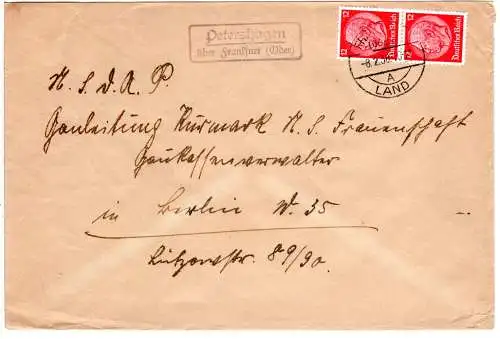 Petershagen
über Frankfurt (Oder)
12 Deutsches Reich 12 Deutsches Reich
-8.2.
A
LAND
N. S. D. A. P.
Gauleitung Kurmark N. S. Frauenschaft
Gaukassenverwalter
in Berlin W. 35
Lützowstr. 89/90.